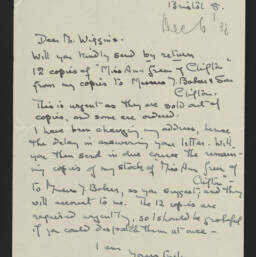 Bristol 8.
Dec 6' 38
Dear Mr. Wiggins.
Will you kindly send by return
12 copies of "Miss Ann Green of Clifton"
from my copies to Messrs J. Baker & Son
Clifton.
This is urgent as they are sold out of
copies, and some are ordered.
I have been changing my address, hence
the delay in answering your letter. Will
you then send in due course the remain-
ing copies of my stock of "Miss Ann Green of
Clifton"
to Messrs J. Baker, as you suggest, and they
will account to me. The 12 copies are
required urgently, so I should be grateful
if you could despatch them at once -
I am
Yours